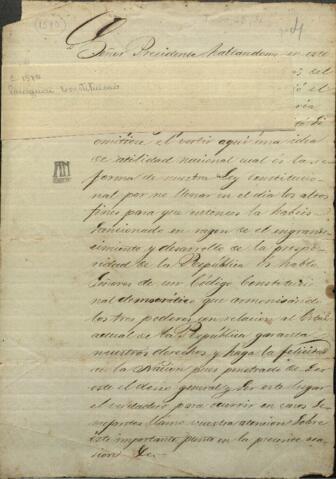 (1870)
Señor Presidente hallandome en este
del
c 1870
Paraguai Constitucion
el
omitire el vertir aqui una idea
de utilidad nacional cual es la re
forma de nuestra Ley constitucio
nal por no llenar en el dia los altos
fines para que entonces la habían
sancionado en razon de el engrande
cimiento y desarrollo de la prospe
ridad de la República Os hablo
Señores de un Código Constitucio
nal democrático que armonizando
los tres poderes con relacion al Estado
actual de la República garanta
nuestros derechos y haga la felicidad
de la Nacion pues penetrado de ser
este el deseo general y ser este lugar
el verdadero para ocurrir en casos se
mejantes llamo vuestra atencion sobre
este importante punto en la presente oca
sion